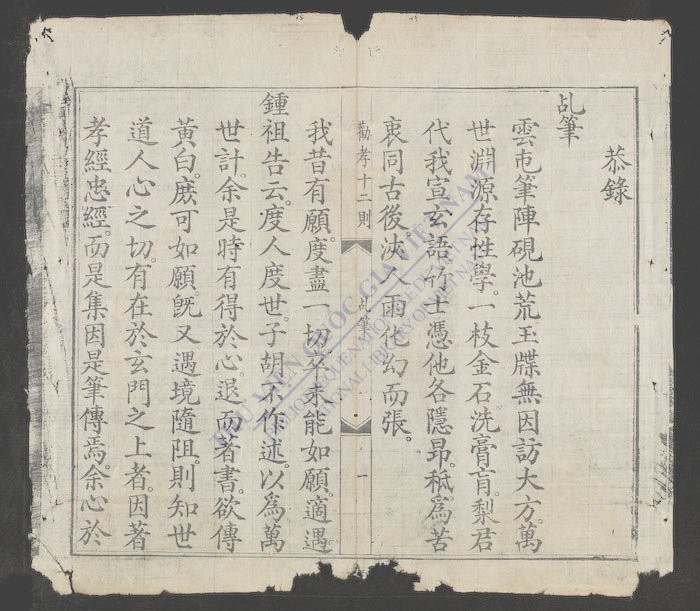 恭錄
乩筆
雲屯筆陣硯池荒玉牒無因訪大方。萬
世淵源存性學。一枝金石洗膏肓。梨君
代我宣玄語竹士憑他各隱昻。秪為苦
衷同古後浹人雨化幻而張。
勸孝十二則 乩筆 一
我昔有願。度盡一切。卒未能如願。適遇
鍾祖告云。度人度世。子胡不作述。以為萬
世計。余是時有得於心。退而著書。欲傳
黃白。庶可如願。旣又遇境隨阻。則知世
道人心之切。有在於玄門之上者。因著
孝經忠經。而是集因是筆傳焉。余心於
THƯ VIỆN QUỐC GIA VIỆT NAM
NATIONAL LIBRARY OF VIETNAM